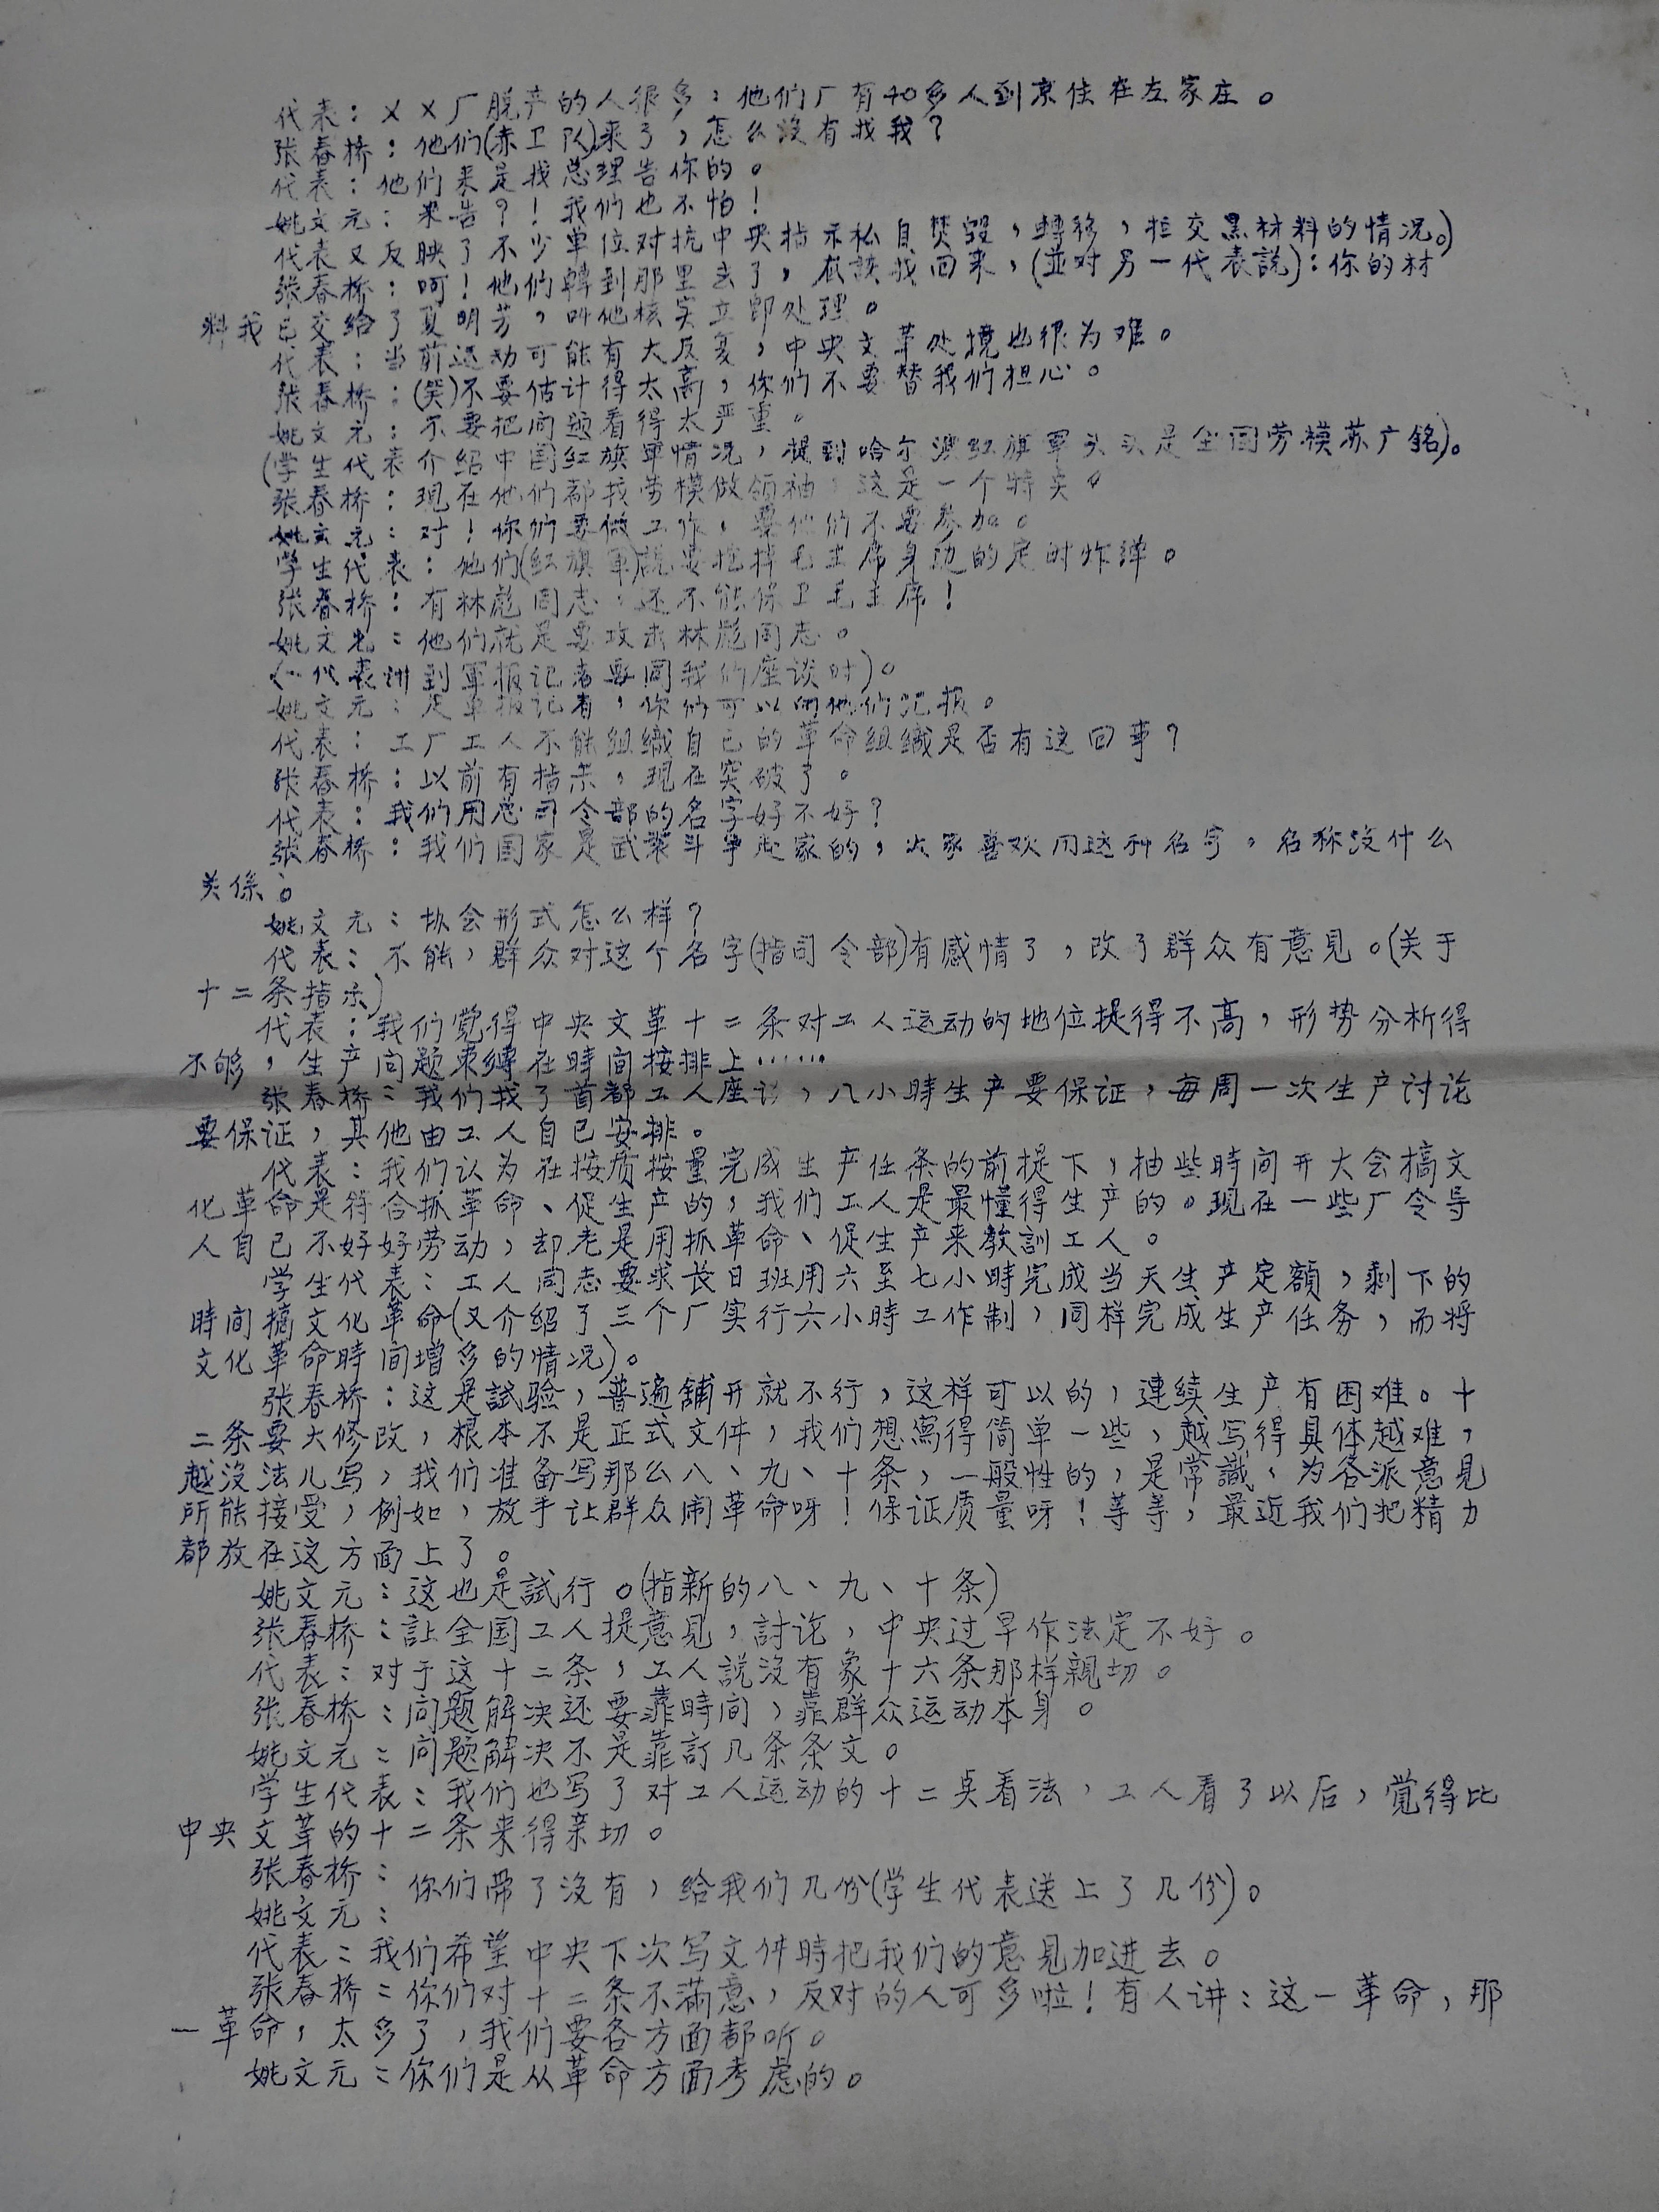 代表：××厂脱产的人很多；他们厂有40多人到京住在左家庄。
张春桥：他们(赤卫队)来了，怎么没有找我？
代表：他们来是找总理告你的。
姚文元：来告？！我们也不怕！
代表又反映了不少单位对抗中央指示私自焚毁，轉移，拒交黑材料的情况。)
张春桥：呵！他们轉到那里去了，应該找回来，(並对另一代表説)：你的材
料我已交给了夏明芳，叫他核实立即处理。
代表：当前运动可能有大反复，中央文革处境也很为难。
张春桥：(笑)不要估计得太高，你们不要替我们担心。
姚文元：不要把问题看得太严重。
(学生代表介绍中国红旗軍情况，提到哈尔滨红旗軍头头是全国劳模苏广銘)。
张春桥：现在他们都找劳模做领袖，这是一个特奌。
姚文元：对！你们要做工作，要他们不要参加。
学生代表：他们(红旗軍)説要挖掉毛主席身边的定时炸弹。
张春桥：有林彪同志，还不能保卫毛主席！
姚文元：他们就是要攻击林彪同志。
(代表讲到軍报记者要同我们座谈时)。
姚文元：是軍报记者，你们可以向他们汇报。
代表：工厂工人不能组織自己的革命组織是否有这回事？
张春桥：以前有指示，现在突破了。
代表：我们用总司令部的名字好不好？
张春桥：我们国家是武装斗争起家的，大家喜欢用这种名字，名称没什么
关係。
姚文元：协会形式怎么样？
代表：不能，群众对这个名字(指司令部)有感情了，改了群众有意见。(关于
十二条指示)
代表：我们觉得中央文革十二条对工人运动的地位提得不高，形势分析得
不够，生产问题束缚在時间按排上……
张春桥：我们找了首都工人座谈，八小時生产要保证，每周一次生产讨论
要保证，其他由工人自己安排。
代表：我们认为在按质按量完成生产任务的前提下，抽些時间开大会搞文
化革命是符合抓革命、促生产的，我们工人是最懂得生产的。现在一些厂令导
人自己不好好劳动，却老是用抓革命、促生产来教訓工人。
学生代表：工人同志要求长日班用六至七小時完成当天生产定額，剩下的
時间搞文化革命(又介紹了三个厂实行六小時工作制，同样完成生产任务，而将
文化革命時间增多的情况)。
张春桥：这是試验，普遍舗开就不行，这样可以的，連续生产有困难。十
二条要大修改，根本不是正式文件，我们想寫得简单一些，越写得具体越难，
越没法儿写，我们准备写那么八、九、十条，一般性的，是常識，为各派意见
所能接受，例如，放手让群众闹革命呀！保证质量呀！等等，最近我们把精力
都放在这方面上了。
姚文元：这也是試行。(指新的八、九、十条)
张春桥：让全国工人提意见，討论，中央过早作法定不好。
代表：对于这十二条，工人説没有象十六条那样親切。
张春桥：问题解决还要靠時间，靠群众运动本身。
姚文元：问题解决不是靠訂几条条文。
学生代表：我们也写了对工人运动的十二奌看法，工人看了以后，觉得比
中央文革的十二条来得亲切。
张春桥：
姚文元：
你们带了没有，给我们几份(学生代表送上了几份)。
代表：我们希望中央下次写文件時把我们的意见加进去。
张春桥：你们对十二条不满意，反对的人可多啦！有人讲：这一革命，那
一革命，太多了，我们要各方面都听。
姚文元：你们是从革命方面考虑的。